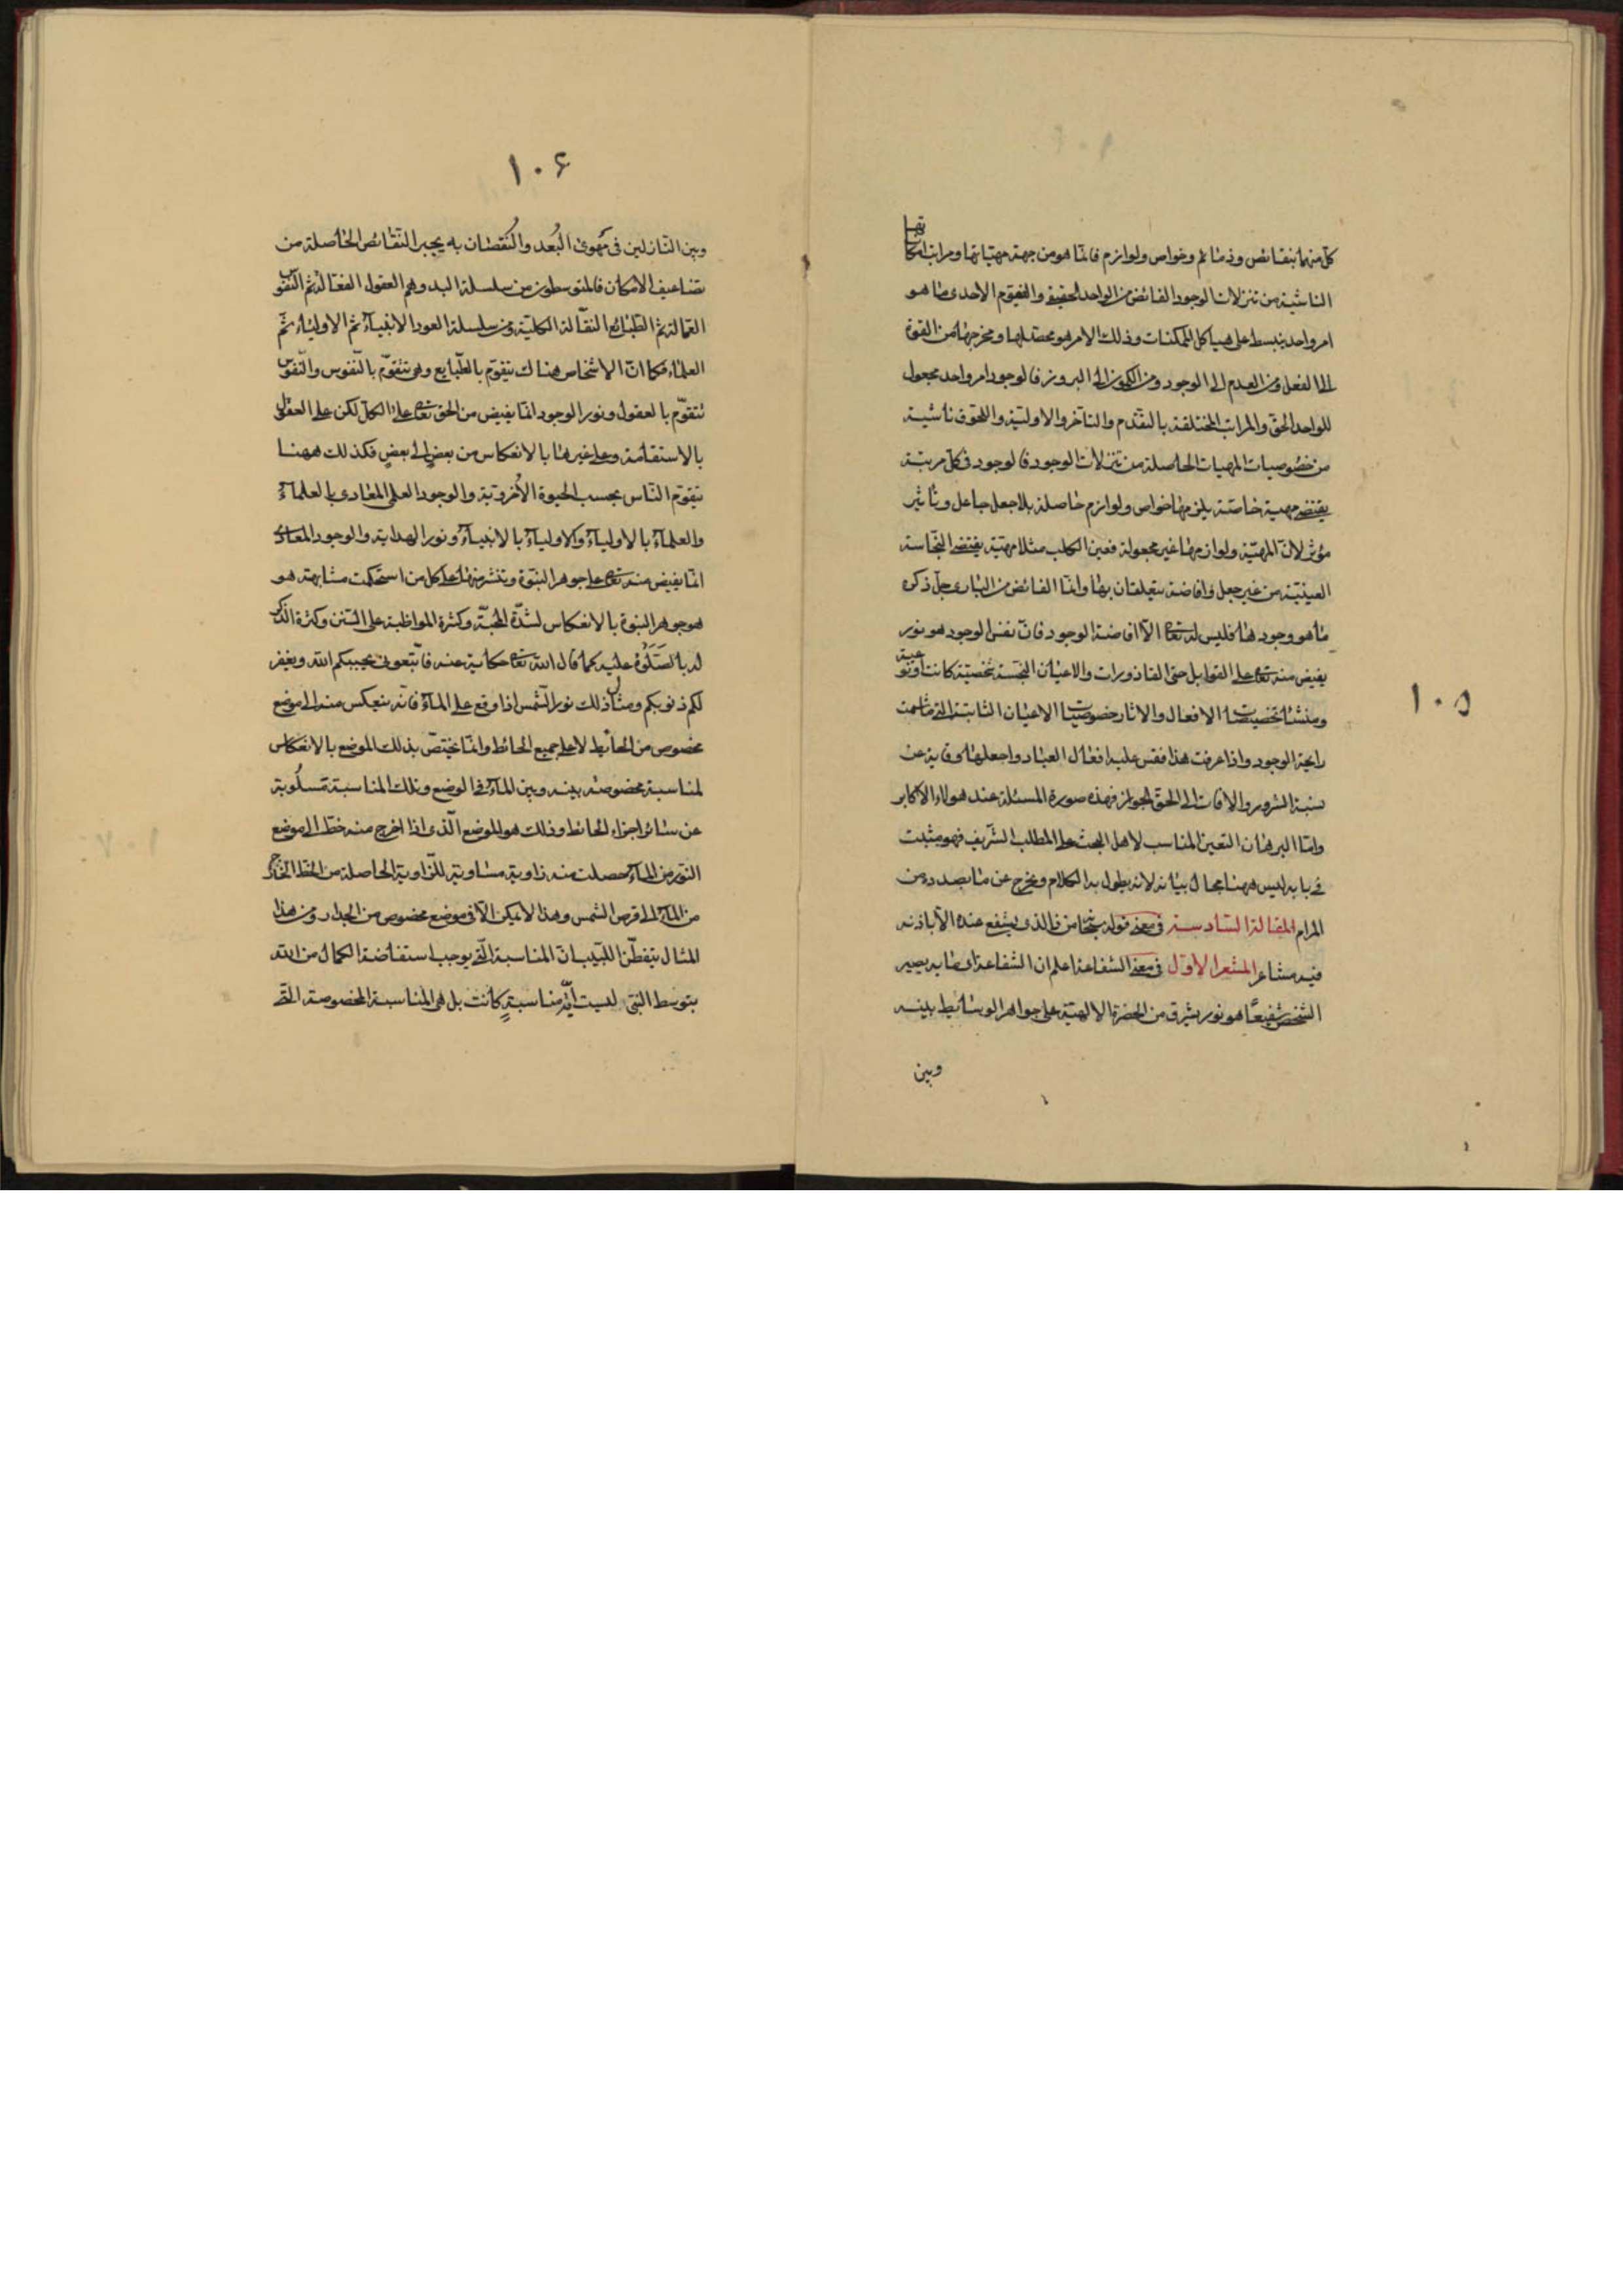 ١٠٥
كل منهما بنقائص وذمائم وخواص ولوازم فانما هو من جهة مهياتها ومراتب امكاناتها
الناشية من تنزلات الوجود الفائض من الواحد الحقيقى والقيوم الاحدى مما هو
امر واحد ينبسط على هياكل الممكنات وذلك الامر هو محصلها ومخرجها من القوة
الى الفعل ومن العدم الى الوجود ومن الكمون الى البروز فالوجود امر واحد مجعول
للواحد الحق والمراتب المختلفة بالتقدم والتاخر والاولية واللحوق ناشية
من خصوصيات المهيات الحاصلة من تنزلات الوجود فالوجود فى كل مرتبة
يقتضى مهية خاصة يلزمها خواص ولوازم حاصلة بلا جعل جاعل وتاثير
مؤثر لان المهية ولوازمها غير مجعولة فعين الكلب مثلا مهية يقتضى النجاسة
العينية من غير جعل وافاضة يتعلقان بها وانما الفائض من البارى جل ذكره
ما هو وجود لها فليس له تعالى الا افاضة الوجود فان نفس الوجود هو نور
يفيض منه تعالى على القوابل حتى القاذورات والاعيان النجسة شخصية كانت او نوعية
ومنشا تخصيصات الافعال والاثار خصوصيات الاعيان الثابتة التى ما شمت
رايحة الوجود واذا عرفت هذا فقس عليه افعال العباد واجعلها وقاية عن
نسبة الشرور والافات الى الحق الجواد فهذه صورة المسئلة عند هولاء الاكابر
واما البرهان المناسب لاهل البحث على المطلب الشريف فهو مثبت
فى بابه ليس ههنا مجال بيانه لانه يطول به الكلام ويخرج عن ما بصدده من
المرام المقالة السادسة فى معنى قوله سبحانه من ذا الذى يشفع عنده الا باذنه
فيه مشاعر المشعر الاول فى معنى الشفاعة اعلم ان الشفاعة اى ما به يصير
الشخص شفيعًا هو نور يشرق من الحضرة الالهية على جواهر الوسائط بينه
وبين
١٠۶
وبين النازلين فى مهوى البُعد والنُقصان به يجبر النقائص الحاصلة من
تضاعيف الامكان فالمتوسطون من سلسلة البدو هم العقول الفعالة ثم النفوس
العمالة ثم الطبائع النقالة الكلية ومن سلسلة العود الانبيآء ثم الاولياء ثم
العلماء فكما ان الاشخاص هناك يتقوم بالطبايع وهى تتقوم بالنفوس والنفوس
تتقوم بالعقول ونور الوجود انما يفيض من الحق تعالى على الكل لكن على العقل
بالاستقامة وعلى غيرها بالانعكاس من بعض الى بعض فكذلك ههنا
يتقوم الناس بحسب الحيوة الاُخروية والوجود العلمى المعادى بالعلمآء
والعلمآء بالاوليآء والاوليآء بالانبيآء ونور الهداية والوجود المعادى
انما يفيض منه تعالى على جوهر النبوة وينشر منها على كل من استحكمت مشابهته هو
هو جوهر النبوة بالانعكاس لشدة المحبة وكثرة المواظبة على السنن وكثرة الذكر
له بالصَلَوٰة عليه كما قال الله تعالى حكاية عنه فاتبعونى يحببكم الله ويغفر
لكم ذنوبكم ومثال ذلك نور الشمس اذا وقع على المآء فانه ينعكس منه الى موضع
مخصوص من الحائط لا على جميع الحائط وانما يختص بذلك الموضع بالانعكاس
لمناسبة مخصوصة بينه وبين المآء فى الوضع وتلك المناسبة مسلُوبة
عن سائر اجزاء الحائط وذلك هو الموضع الذى اذا اخرج منه خط الى موضع
النور من المآء حصلت منه زاوية مساوية للزاوية الحاصلة من الخط الخارج
من المآء الى قرص الشمس وهذا لا يمكن الا فى موضع مخصوص من الجدار ومن هذا
المثال يتفطن اللبيب ان المناسبة التى يوجب استفاضة الكمال من الله
بتوسط النبى ليست اية مناسبةٍ كانت بل هى المناسبة المخصوصة التى